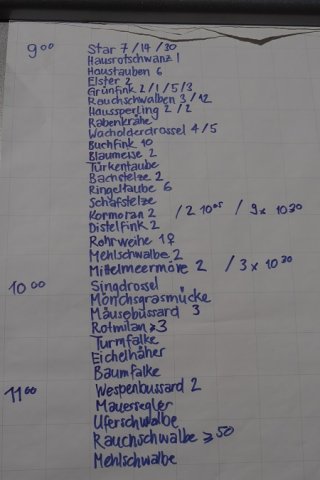 9⁰⁰ Star 7 / 14 / 30
Hausrotschwanz 1
Haustauben 6
Elster 2
Grünfink 2 / 1 / 5 / 3
Rauchschwalben 3 / 12
Haussperling 2 / 2
Rabenkrähe
Wacholderdrossel 4 / 5
Buchfink 10
Blaumeise 2
Türkentaube
Bachstelze 2
Ringeltaube 6
Schafstelze
Kormoran 2 / 2 10⁰⁵ / 9x 10³⁰
Distelfink 2
Rohrweihe 1♀
Mehlschwalbe 2
Mittelmeermöwe 2 / 3 x 10³⁰
10⁰⁰ Singdrossel
Mönchsgrasmücke
Mäusebussard 3
Rotmilan ≥3
Turmfalke
Eichelhäher
Baumfalke
11⁰⁰ Wespenbussard 2
Mauersegler
Uferschwalbe
Rauchschwalbe ≥ 50
Mehlschwalbe